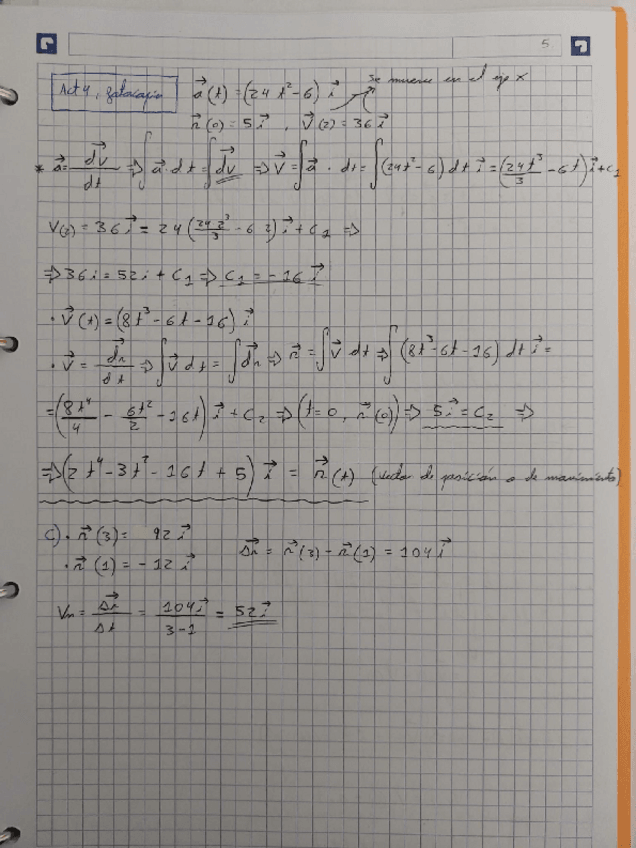 5
Act 4, fotocopia  a⃗(t) = (24t² - 6) i⃗  se mueve en el eje x
r⃗(0) = 5i⃗ , v⃗(2) = 36i⃗
* a⃗ = dv⃗/dt ⇒ ∫a⃗ · dt = ∫dv⃗ ⇒ v⃗ = ∫a⃗ · dt = ∫(24t² - 6) dt i⃗ = (24t³/3 - 6t) i⃗ + C₁
V(2) = 36i⃗ = 24(24 2³/3 - 6 2) i⃗ + C₁ ⇒
⇒ 36i = 52i + C₁ ⇒ C₁ = -16 i⃗
· v⃗(t) = (8t³ - 6t - 16) i⃗
· v⃗ = dr⃗/dt ⇒ ∫v⃗ dt = ∫dr⃗ ⇒ r⃗ = ∫v⃗ dt ⇒ ∫(8t³ - 6t - 16) dt i⃗ =
= (8t⁴/4 - 6t²/2 - 16t) i⃗ + C₂ ⇒ (t=0, r⃗(0)) ⇒ 5i⃗ = C₂ ⇒
⇒ (2t⁴ - 3t² - 16t + 5) i⃗ = r⃗(t) (vector de posición o de movimiento)
C) · r⃗(3) = 92 i⃗  Δr⃗ = r⃗(3) - r⃗(1) = 104 i⃗
· r⃗(1) = -12 i⃗
Vm = Δr⃗/Δt = 104i⃗/3-1 = 52i⃗